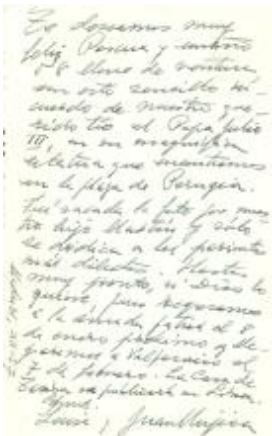 Te deseamos muy
feliz Pascua y
58 lleno de ventura
con este sencillo re-
cuerdo de nuestro que-
rido tío el Papa Julio
III, en su magnífica
estatua que encontramos
en la plaza de Perugia.
Fué sacada la foto por nues-
tro hijo Martín y sólo
se dedica a los parientes
más dilectos. Hasta
muy pronto, si Dios lo
quiere, pues zarparemos
a la el 8
de enero próximo y lle-
garemos a Valparaíso el
7 de febrero. La Casa de
se publicará en Lima.
y Juan Mujica